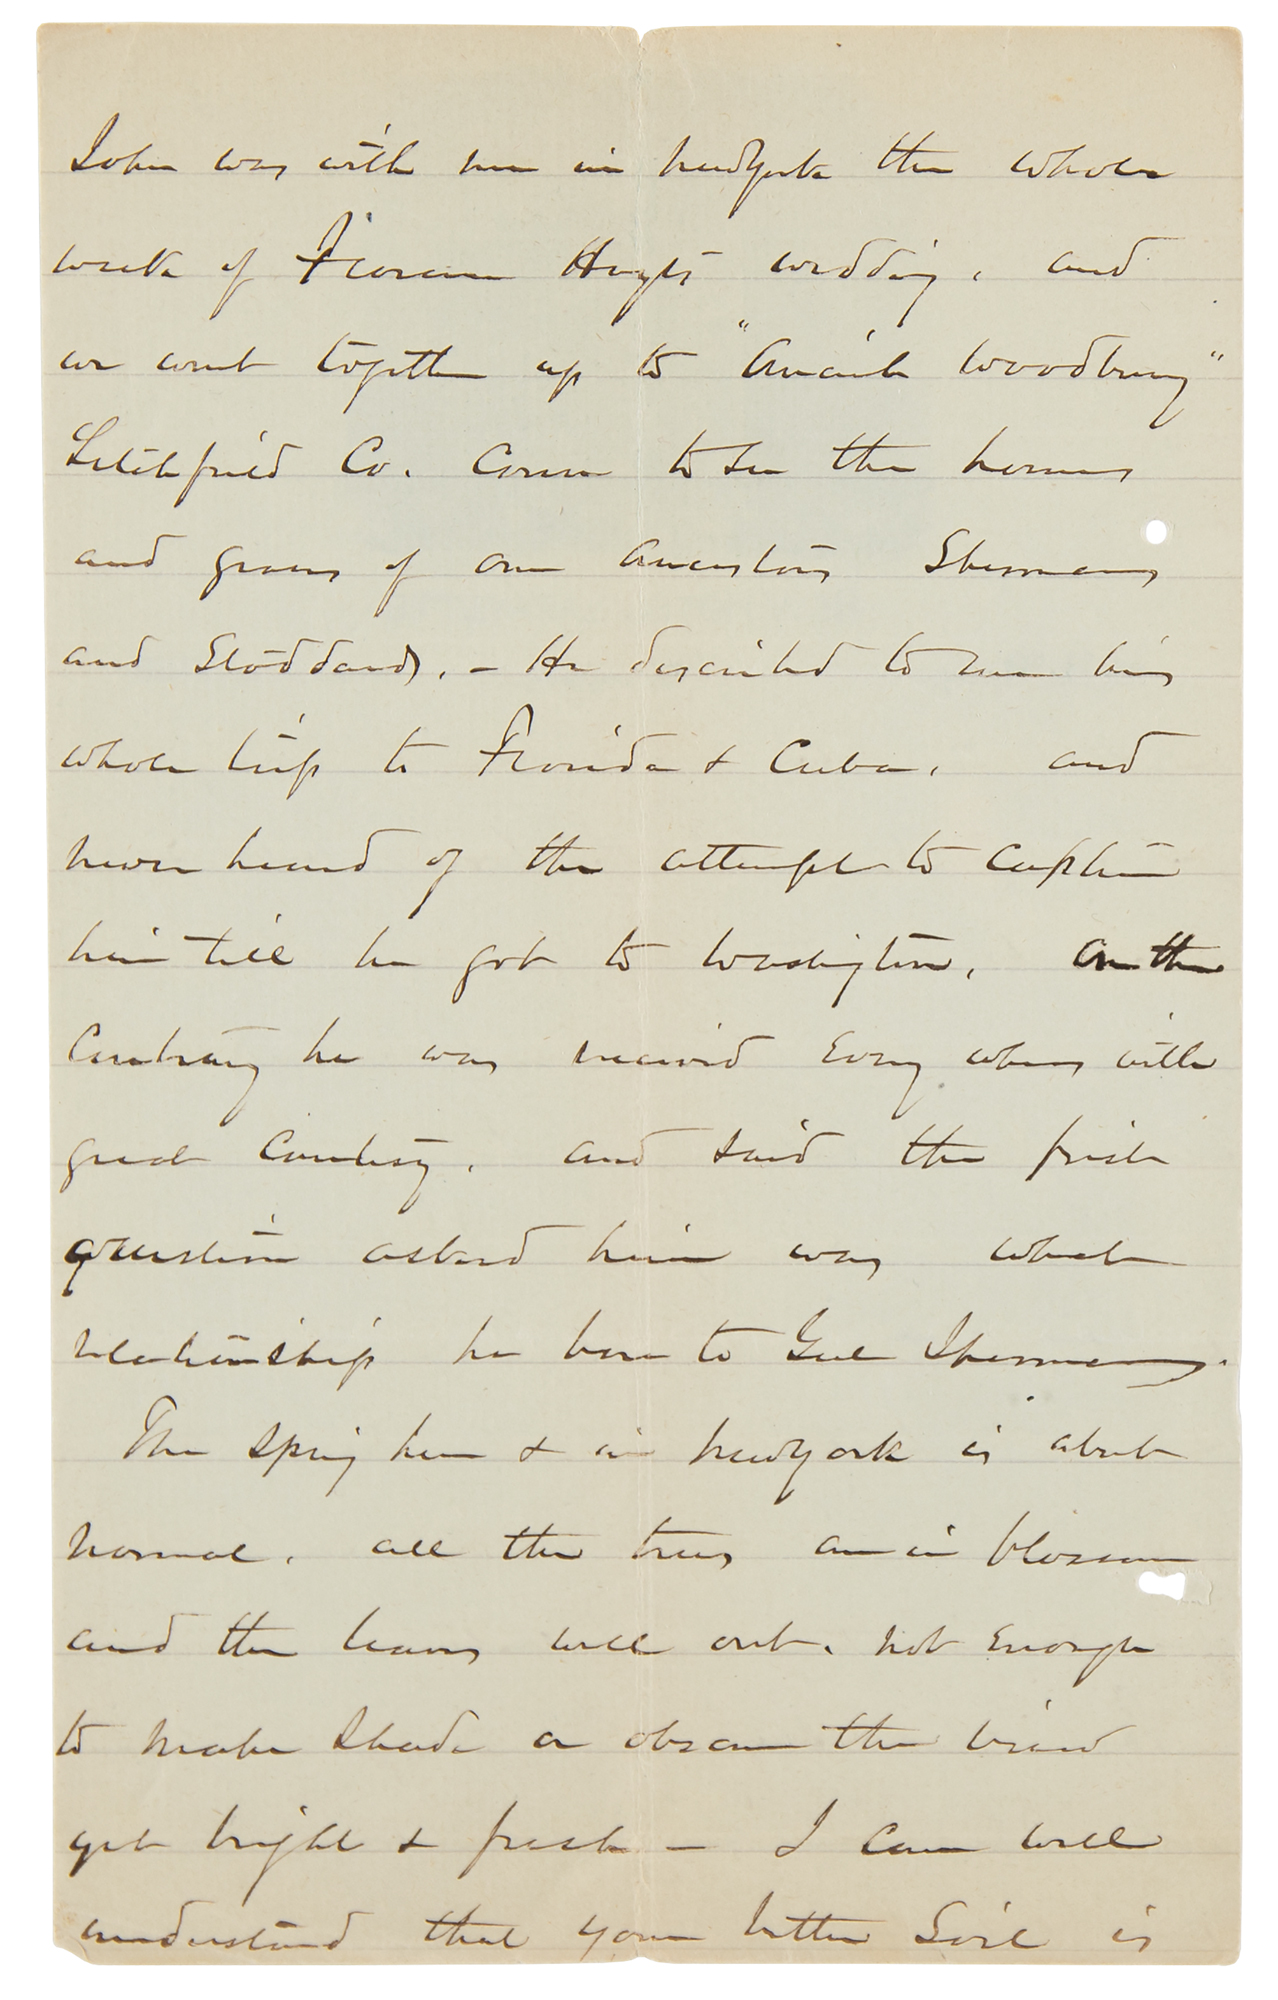 John was with me in New York the whole
week of Florence Hoyt's wedding, and
we went together up to "Ancient Woodbury"
Litchfield Co. Conn to see the homes
and graves of our ancestors Shermans
and Stoddards. - He described to me his
whole trip to Florida & Cuba, and
never heard of the attempt to capture
him till he got to Washington, on the
Contrary he was received Every where with
great Courtesy, and said the first
question asked him was what
relationship he bore to Genl Sherman.
The Spring here & in New York is about
normal. all the trees are in blossom
and the leaves well out, not Enough
to make Shade or obscure the view
yet bright & fresh - I can well
understand that your better Soil is